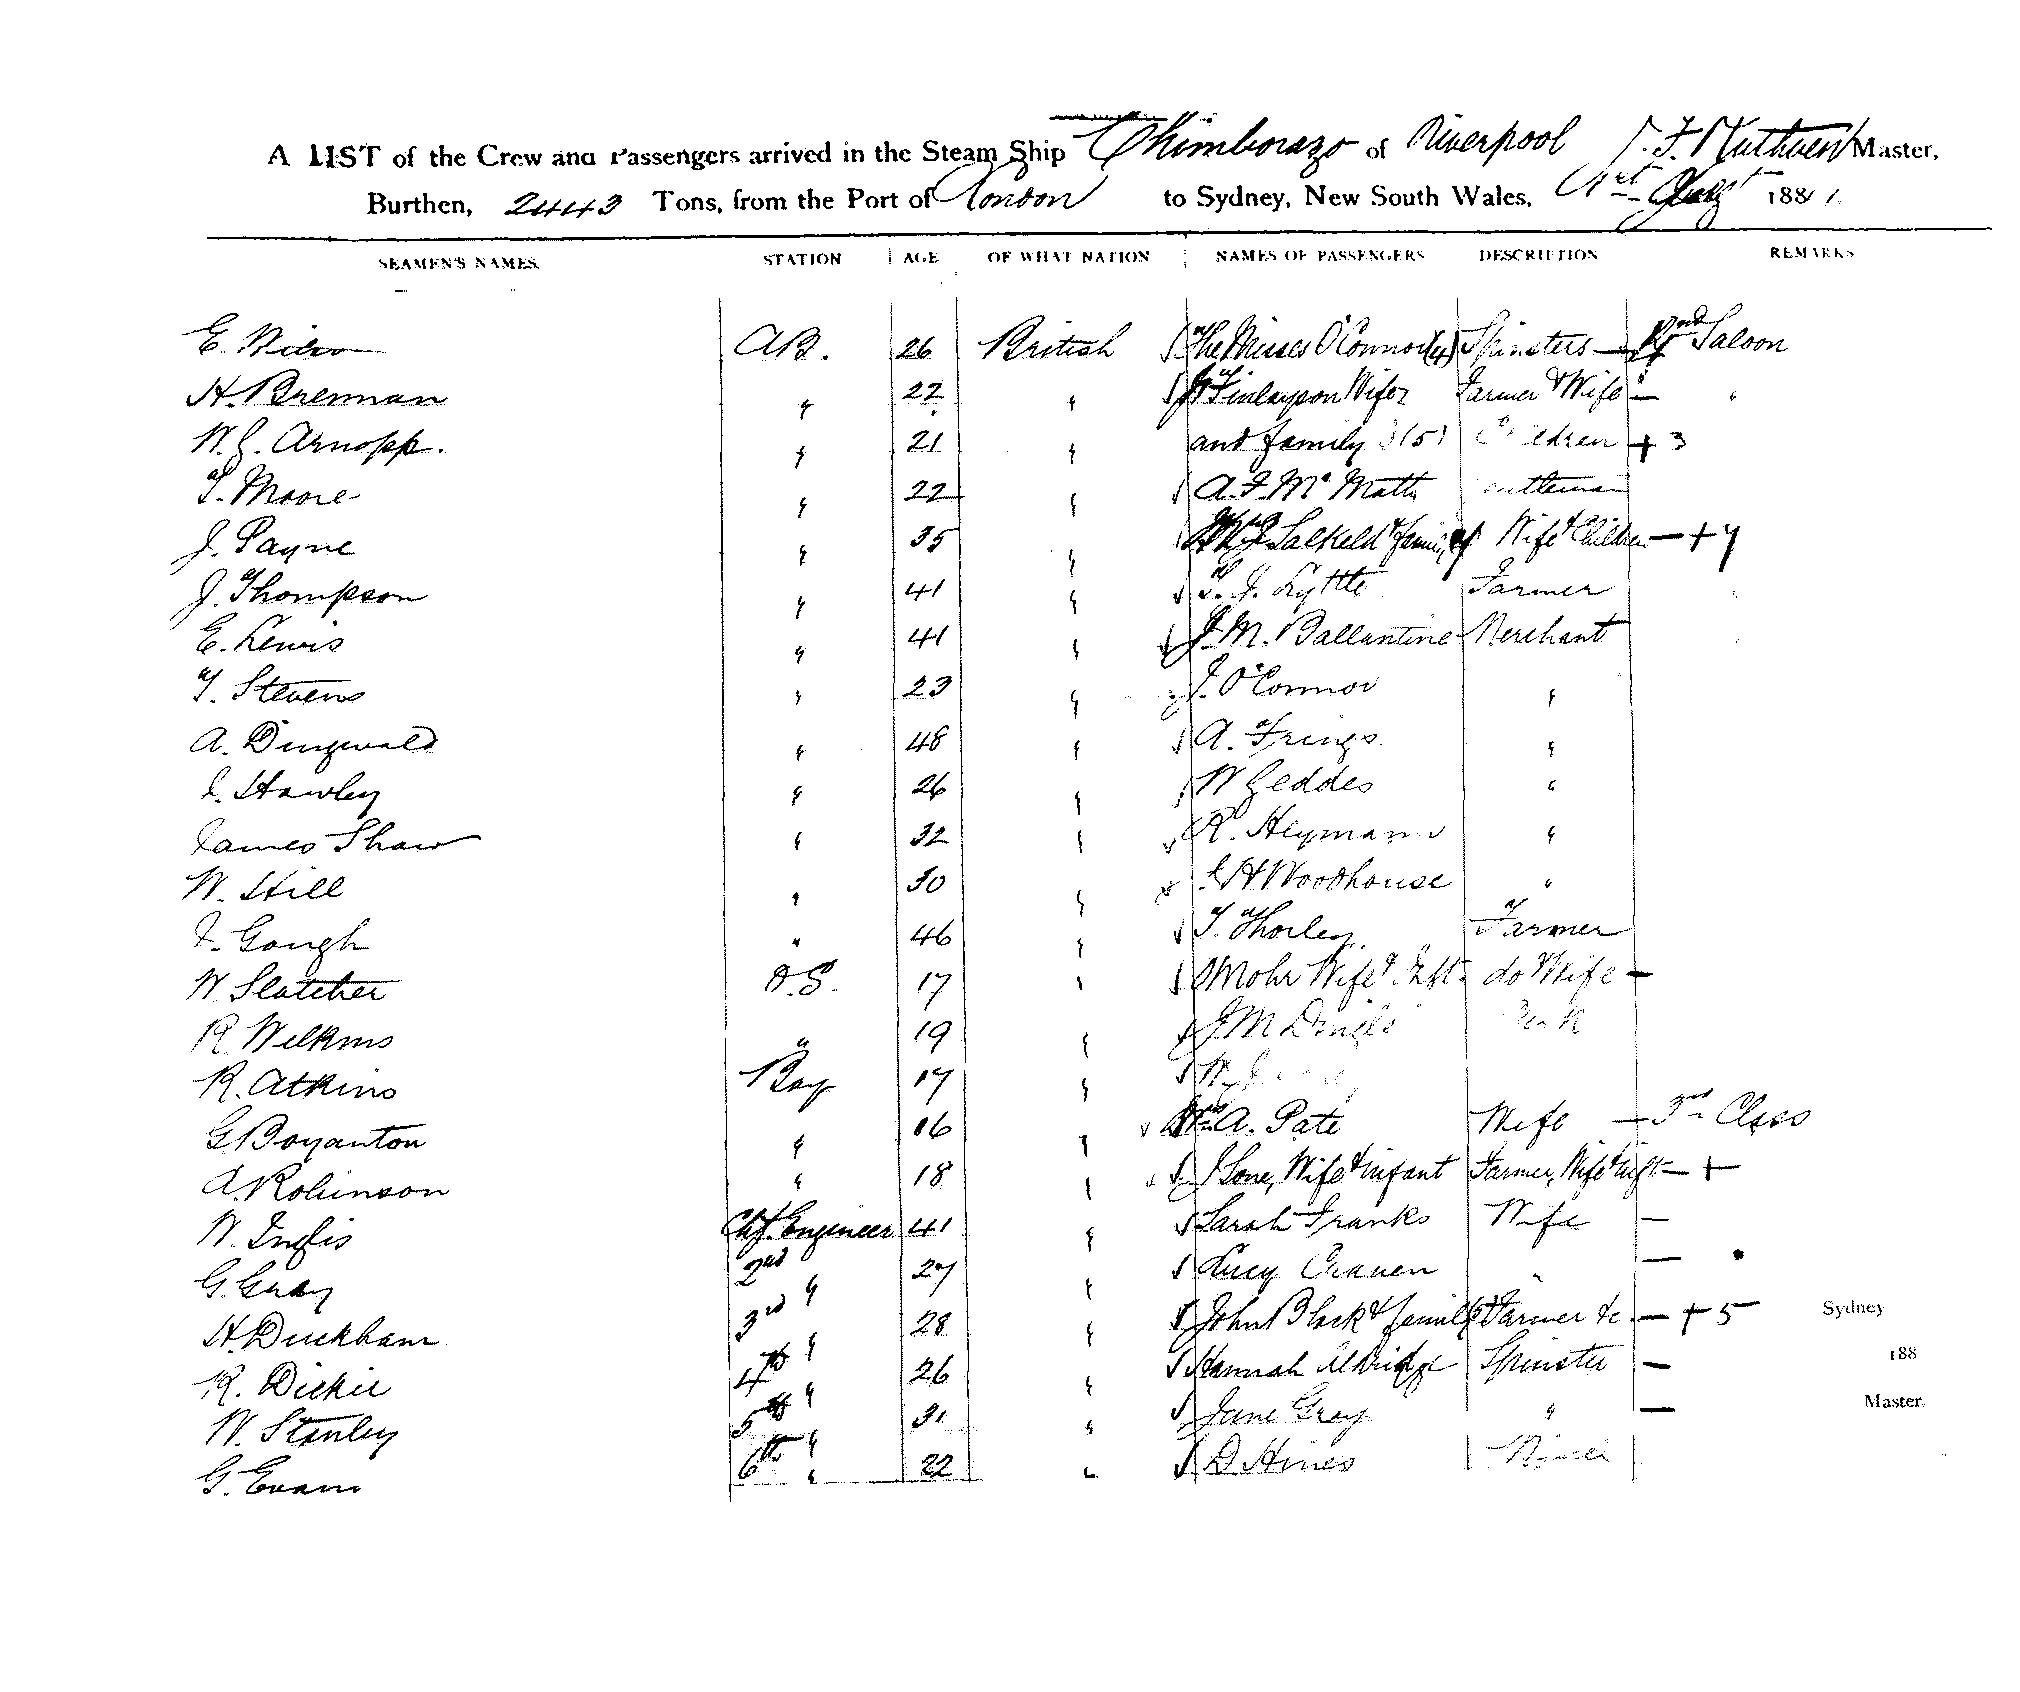 A LIST of the Crew and Passengers arrived in the Steam Ship Chimborazo of Liverpool J. F. Ruthven Master,
Burthen, 2443 Tons, from the Port of London to Sydney, New South Wales, 1st Augst 1881.
SEAMEN'S NAMES. STATION AGE OF WHAT NATION NAMES OF PASSENGERS DESCRIPTION REMARKS
E. AB. 26 British The Misses O'Connor (4) Spinsters — 2nd Saloon
H. Brennan " 22 " Finlayson Wife & Farmer & Wife — "
W. J. Arnopp. " 21 " and family 3 (5) Children + 3
T. Moore " 22 " A. F. Mc Math Gentleman
J. Payne " 35 " Salkeld & family Wife & Children — + 4
J. Thompson " 41 " T. J. Lyttle Farmer
E. Lewis " 41 " J. M. Ballantine Merchant
T. Stevens " 23 " J. O'Connor "
A. Dingwald " 48 " A. Frings "
J. Hawley " 26 " W Geddes "
James Shaw " 32 " R. Heymann "
W. Hill " 30 " H Woodhouse "
J. Gough " 46 " T. Thorley Farmer
W. Slatcher O.S. 17 " Mohr Wife & Inft. do Wife —
R. Wilkins " 19 " J M
R. Atkins Boy 17 " W.
G. Boyanton " 16 " Mrs A. Pate Wife — 3rd Class
A. Robinson " 18 " J Lone, Wife & infant Farmer, Wife & Inft — +
W. Inglis Chf. Engineer 41 " Sarah Franks Wife —
G. Gray 2nd " 27 " Lucy Craven " —
H. Duckham 3rd " 28 " John Black & family Farmer &c. — + 5 Sydney
R. Dickie 4th " 26 " Hannah Aldridge Spinster — 188
W. Stanley 5th " 31 " Jane Gray " — Master.
G. Evans 6th " 22 " D. Hines Miner